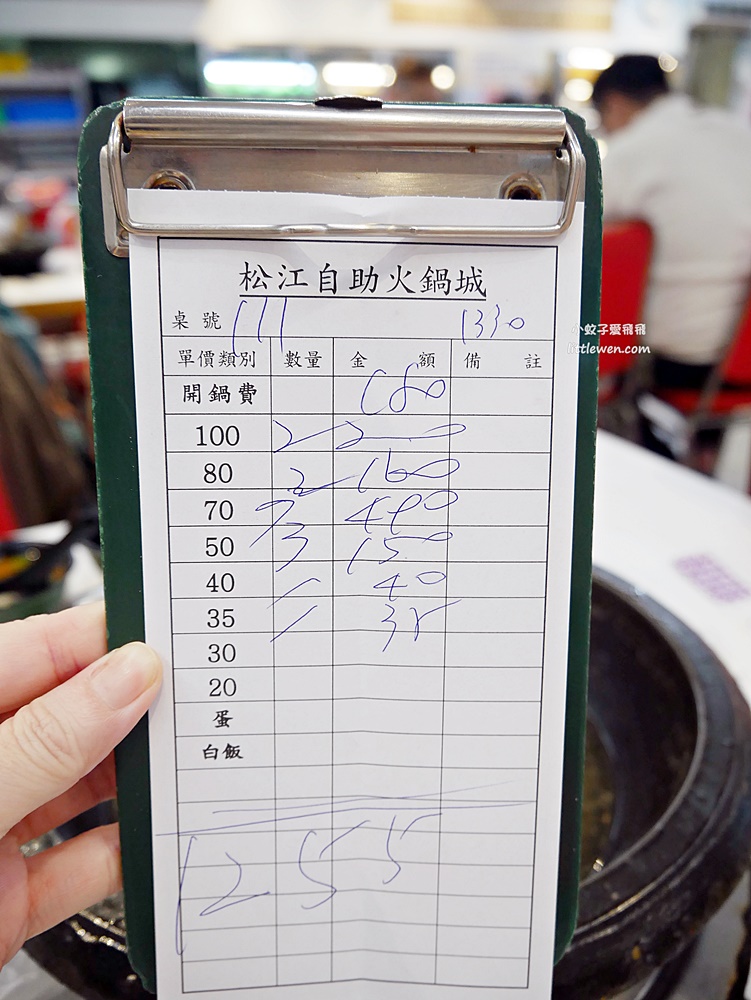 松江自助火鍋城
桌號 111 1330
小蚊子愛飛飛
littlewen.com
單價類別 數量 金額 備註
開鍋費 180
100 2 200
80 2 160
70 7 490
50 3 150
40 1 40
35 1 35
30
20
蛋
白飯
1255